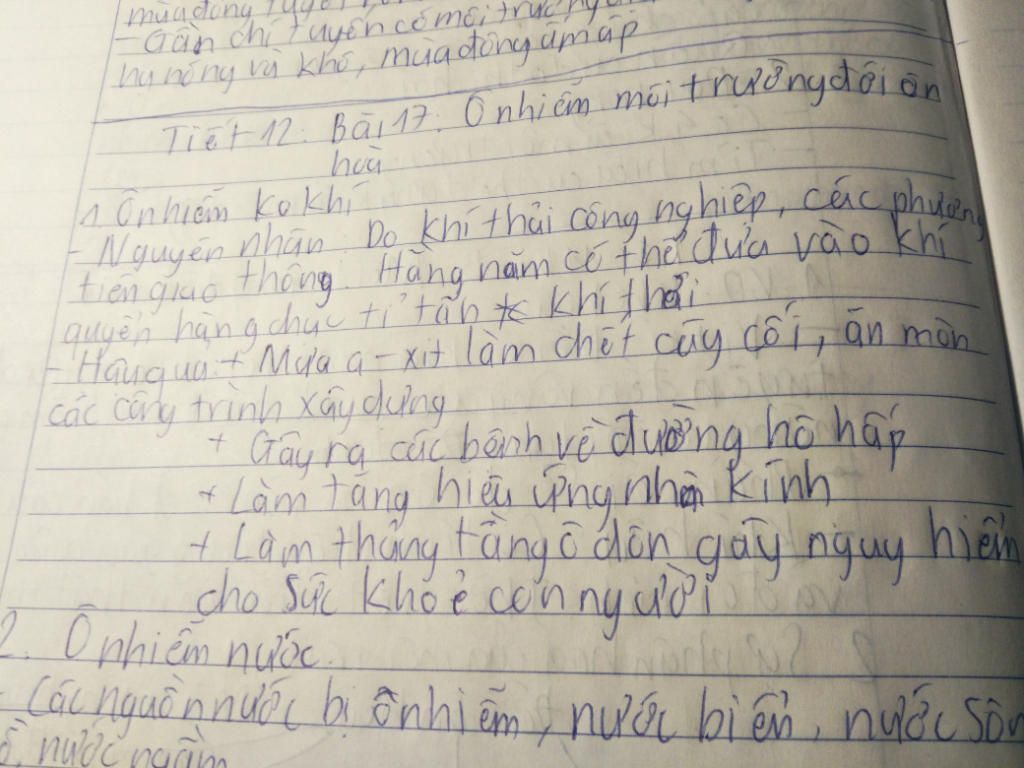 mùa đông
- Gần chí tuyến có môi trường
hạ nóng và khô, mùa đông ấm áp
Tiết 12: Bài 17: Ô nhiễm môi trường đới ôn
hoà
1. Ô nhiễm ko khí
- Nguyên nhân: Do khí thải công nghiệp, các phương
tiện giao thông. Hằng năm có thể đưa vào khí
quyển hàng chục tỉ tấn khí thải
- Hậu quả: + Mưa a-xit làm chết cây cối, ăn mòn
các công trình xây dựng
+ Gây ra các bệnh về đường hô hấp
+ Làm tăng hiệu ứng nhà kính
+ Làm thủng tầng ô dôn gây nguy hiểm
cho sức khoẻ con người
2. Ô nhiễm nước.
- Các nguồn nước bị ô nhiễm, nước biển, nước sôn
nước ngầm